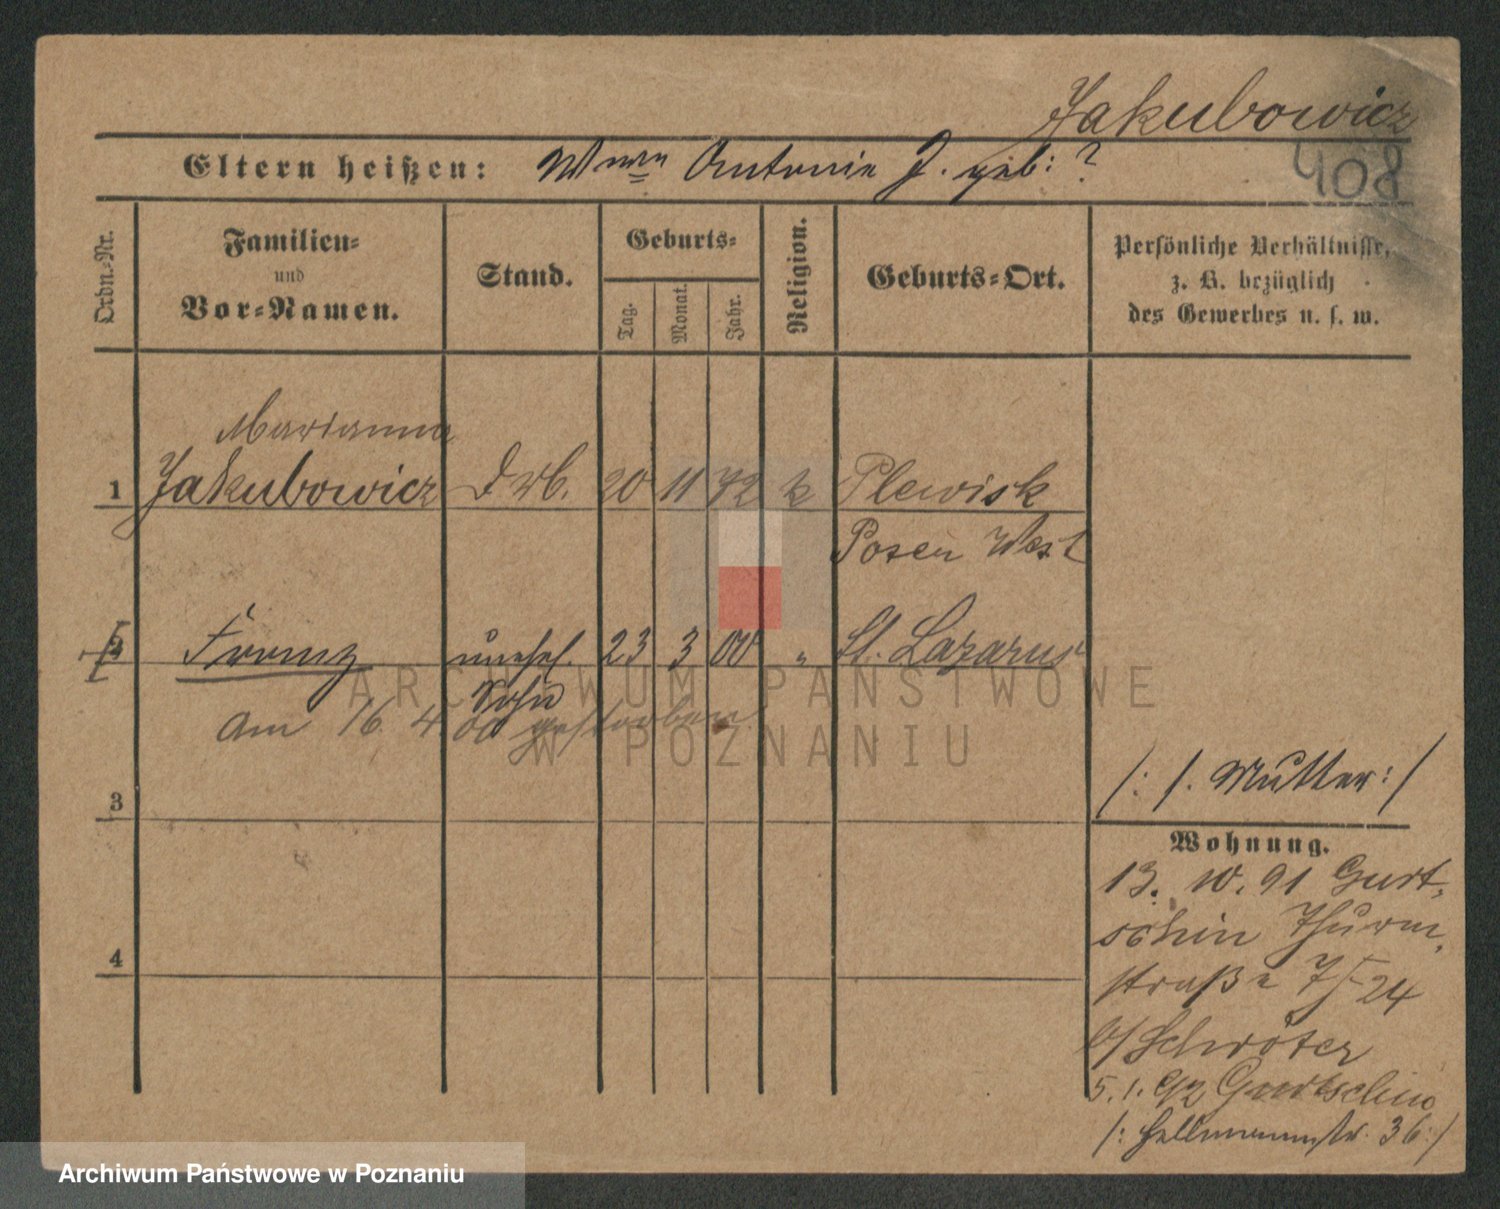 Jakubowicz
408
Eltern heißen: Wwe Antonie J. geb: ?
Ordn.-Nr.
Familien-
und
Vor-Namen.
Stand.
Geburts-
Tag.
Monat.
Jahr.
Religion.
Geburts-Ort.
Persönliche Verhältnisse,
z. B. bezüglich
des Gewerbes u. s. w.
Marianna
1 Jakubowicz 20 11 72 k Plewisk
Posen West
2 Franz unehel. 23 3 00 " St. Lazarus
Sohn
am 16. 4. 00 gestorben
3
4
/: s. Mutter :/
Wohnung.
13. 10. 91 Gurt-
schin Thurm-
straße 24
b/ Schröter
5. 1. 92 Gurtschin
/: Hellmannstr. 36 :/
ARCHIWUM PAŃSTWOWE
W POZNANIU
Archiwum Państwowe w Poznaniu